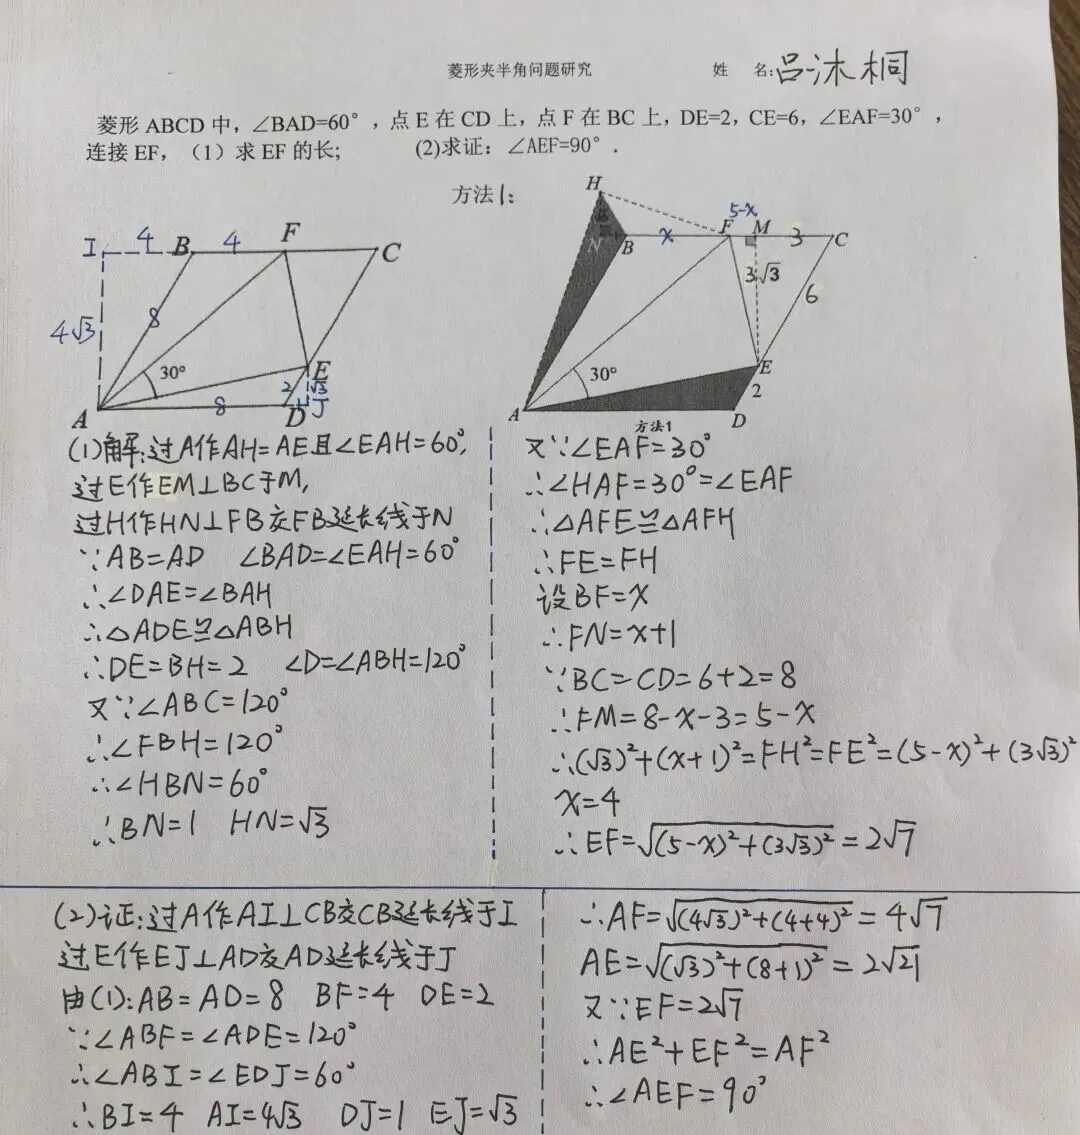 菱形夹半角问题研究 姓 名:吕沐桐
菱形 ABCD 中，∠BAD=60°，点 E 在 CD 上，点 F 在 BC 上，DE=2，CE=6，∠EAF=30°，
连接 EF，（1）求 EF 的长; (2)求证：∠AEF=90°．
方法1:
I 4 B 4 F C
4√3 8 30° E
2 √3
A 8 D J
H
5-x
N B x F M 3 C
3√3 6
30° E
2
A 方法1 D
(1)解:过A作AH=AE且∠EAH=60°,
过E作EM⊥BC于M,
过H作HN⊥FB交FB延长线于N
∵AB=AD ∠BAD=∠EAH=60°
∴∠DAE=∠BAH
∴△ADE≌△ABH
∴DE=BH=2 ∠D=∠ABH=120°
又∵∠ABC=120°
∴∠FBH=120°
∴∠HBN=60°
∴BN=1 HN=√3
又∵∠EAF=30°
∴∠HAF=30°=∠EAF
∴△AFE≌△AFH
∴FE=FH
设BF=x
∴FN=x+1
∵BC=CD=6+2=8
∴FM=8-x-3=5-x
∴(√3)²+(x+1)²=FH²=FE²=(5-x)²+(3√3)²
x=4
∴EF=√((5-x)²+(3√3)²)=2√7
(2)证:过A作AI⊥CB交CB延长线于I
过E作EJ⊥AD交AD延长线于J
由(1):AB=AD=8 BF=4 DE=2
∵∠ABF=∠ADE=120°
∴∠ABI=∠EDJ=60°
∴BI=4 AI=4√3 DJ=1 EJ=√3
∴AF=√((4√3)²+(4+4)²)=4√7
AE=√((√3)²+(8+1)²)=2√21
又∵EF=2√7
∴AE²+EF²=AF²
∴∠AEF=90°